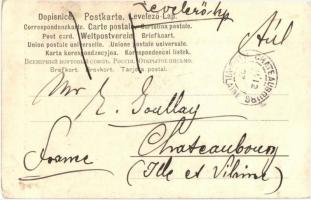 Levelezőlap
Dopisnice. Postkarte. Levelező-Lap.
Correspondenzkarte. Carte postale. Cartolina postale.
Post card. Weltpostverein. Briefkaart.
Union postale universelle. Unione postale universale.
Karta korrespondencyjna. Korespondenční lístek.
Всемірный почтовый союз. Россія. Открытое письмо.
Brefkort. Brevkort. Tarjeta postal.
CHATEAUBOURG
Mr E. Goullay
Chateaubourg
France (Ille et Vilaine)